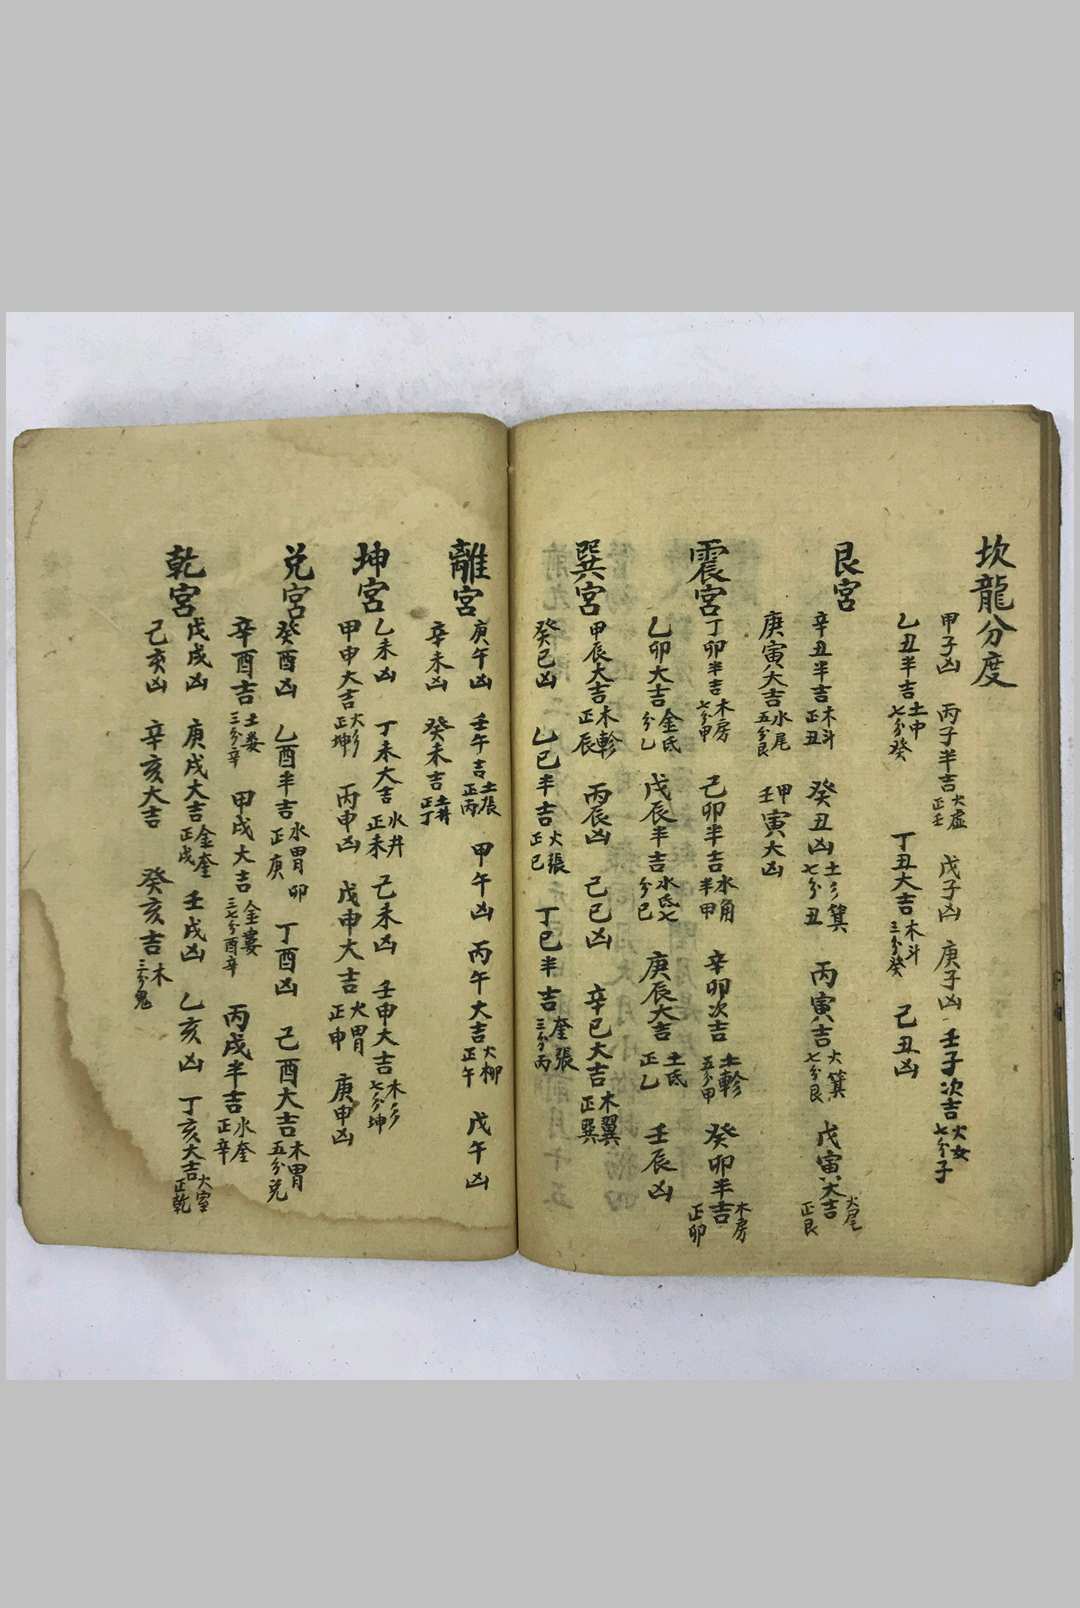 坎龍分度
甲子凶 丙子半吉 火虛 正壬 戊子凶 庚子凶 壬子次吉 火女 七分子
乙丑半吉 土中 七分癸 丁丑大吉 木斗 三分癸 己丑凶
艮宮
辛丑半吉 木斗 正丑 癸丑凶 土箕 七分丑 丙寅吉 火箕 七分艮 戊寅大吉 火尾 正艮
庚寅大吉 水尾 五分艮 甲壬寅大凶
震宮 丁卯半吉 木房 七分甲 己卯半吉 水角 半甲 辛卯次吉 土軫 五分甲 癸卯半吉 木房 正卯
乙卯大吉 金氐 分乙 戊辰半吉 水氐七 分巳 庚辰大吉 土氐 正乙 壬辰凶
巽宮 甲辰大吉 木軫 正辰 丙辰凶 己巳凶 辛巳大吉 木翼 正巽
癸巳凶 乙巳半吉 火張 正巳 丁巳半吉 奎張 三分丙
離宮 庚午凶 壬午吉 土張 正丙 甲午凶 丙午大吉 火柳 正午 戊午凶
辛未凶 癸未吉 土井 正丁
坤宮 乙未凶 丁未大吉 水井 正未 己未凶 壬申大吉 木 七分坤
甲申大吉 火 正坤 丙申凶 戊申大吉 火胃 正申 庚申凶
兌宮 癸酉凶 乙酉半吉 水胃卯 正庚 丁酉凶 己酉大吉 木胃 五分兌
辛酉吉 土婁 三分辛 甲戌大吉 金婁 三七分酉辛 丙戌半吉 水奎 正辛
乾宮 戊戌凶 庚戌大吉 金奎 正戌 壬戌凶 乙亥凶 丁亥大吉 火室 正乾
己亥凶 辛亥大吉 癸亥吉 木 三分鬼